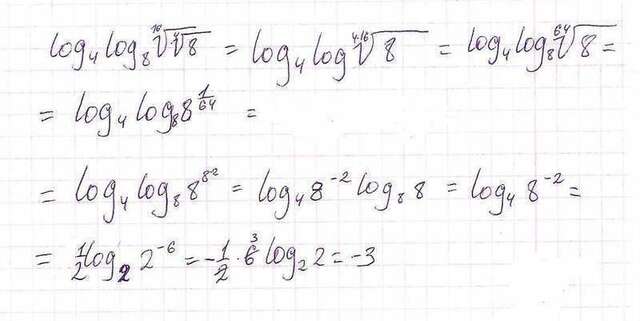 log₄ log₈ ¹⁶√⁴√8 = log₄ log ⁴·¹⁶√8 = log₄ log₈ ⁶⁴√8 =
= log₄ log₈ 8^(1/64) =
= log₄ log₈ 8^(8^2) = log₄ 8⁻² log₈ 8 = log₄ 8⁻² =
= 1/2 log₂ 2⁻⁶ = -1/2 · 6 ³ log₂ 2 = -3